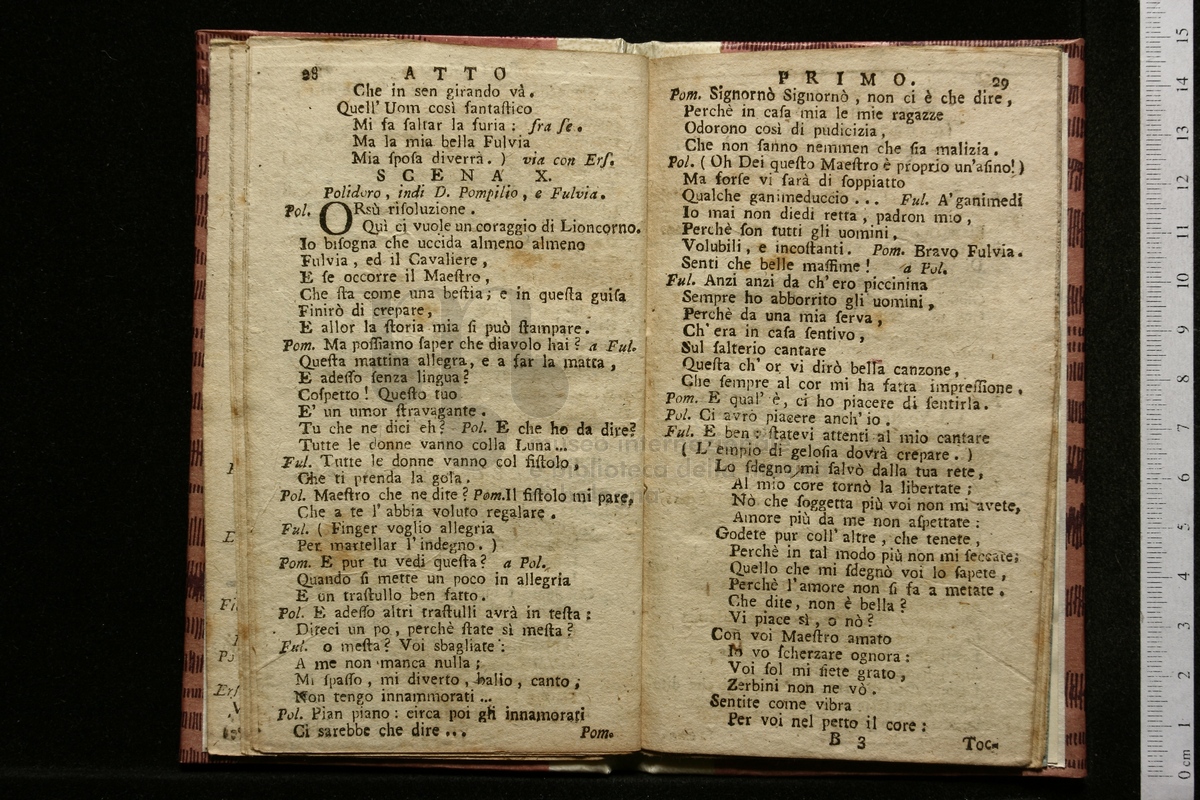 28 ATTO
Che in sen girando và.
Quell' Uom così fantaſtico
Mi fa ſaltar la furia : fra ſe.
Ma la mia bella Fulvia
Mia ſpoſa diverrà. ) via con Erſ.
SCENA X.
Polidoro, indi D. Pompilio, e Fulvia.
Pol. ORsù riſoluzione.
Quì ci vuole un coraggio di Lioncorno.
Io biſogna che uccida almeno almeno
Fulvia, ed il Cavaliere,
E ſe occorre il Maeſtro,
Che ſta come una beſtia; e in queſta guiſa
Finirò di crepare,
E allor la ſtoria mia ſi può ſtampare.
Pom. Ma poſſiamo ſaper che diavolo hai? a Ful.
Queſta mattina allegra, e a far la matta,
E adeſſo ſenza lingua?
Coſpetto! Queſto tuo
E' un umor ſtravagante.
Tu che ne dici eh? Pol. E che ho da dire?
Tutte le donne vanno colla Luna...
Ful. Tutte le donne vanno col fiſtolo,
Che ti prenda la gola.
Pol. Maeſtro che ne dite? Pom. Il fiſtolo mi pare,
Che a te l' abbia voluto regalare.
Ful. ( Finger voglio allegria
Per martellar l'indegno. )
Pom. E pur tu vedi queſta? a Pol.
Quando ſi mette un poco in allegria
E un traſtullo ben fatto.
Pol. E adeſſo altri traſtulli avrà in teſta :
Direci un po, perchè ſtate sì meſta?
Ful. o meſta? Voi sbagliate :
A me non manca nulla;
Mi ſpaſſo, mi diverto, balio, canto;
Non tengo innammorati ...
Pol. Pian piano : circa poi gli innamorati
Ci sarebbe che dire ... Pom.
PRIMO. 29
Pom. Signornò Signornò, non ci è che dire,
Perchè in caſa mia le mie ragazze
Odorono così di pudicizia,
Che non ſanno nemmen che ſia malizia.
Pol. ( Oh Dei queſto Maeſtro è proprio un'aſino! )
Ma forſe vi ſarà di ſoppiatto
Qualche ganimeduccio ... Ful. A' ganimedi
Io mai non diedi retta, padron mio,
Perchè ſon tutti gli uomini,
Volubili, e incoſtanti. Pom. Bravo Fulvia.
Senti che belle maſſime! a Pol.
Ful. Anzi anzi da ch'ero piccinina
Sempre ho abborrito gli uomini,
Perchè da una mia ſerva,
Ch' era in caſa ſentivo,
Sul ſalterio cantare
Queſta ch' or vi dirò bella canzone,
Che ſempre al cor mi ha fatta impreſſione.
Pom. E qual' è, ci ho piacere di ſentirla.
Pol. Ci avrò piacere anch' io.
Ful. E ben : ſtatevi attenti al mio cantare
( L' empio di geloſia dovrà crepare. )
Lo ſdegno mi ſalvò dalla tua rete,
Al mio core tornò la libertate ;
Nò che ſoggetta più voi non mi avete,
Amore più da me non aſpettate :
Godete pur coll' altre, che tenete,
Perchè in tal modo più non mi ſeccate;
Quello che mi ſdegnò voi lo ſapete,
Perchè l'amore non ſi fa a metate.
Che dite, non è bella?
Vi piace sì, o nò?
Con voi Maeſtro amato
Io vo ſcherzare ognora :
Voi ſol mi ſiete grato,
Zerbini non ne vò.
Sentite come vibra
Per voi nel petto il core :
B 3 Toc-